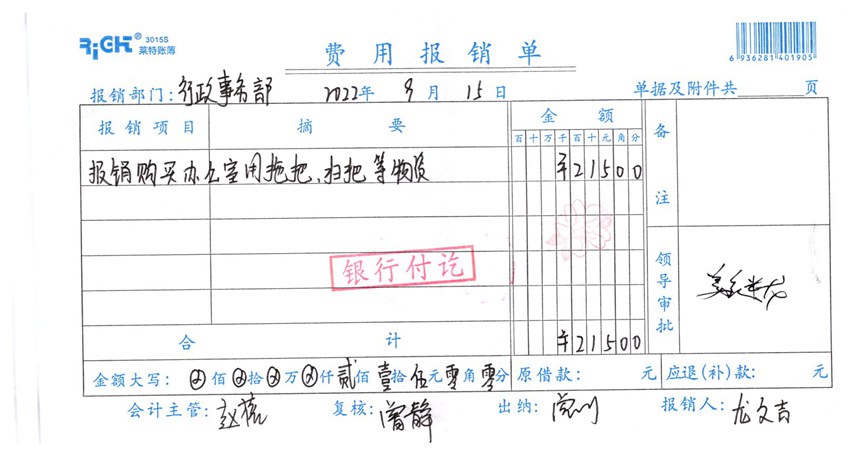 RiGHT® 3015S
莱特账簿
费用报销单
6 936281 401905
报销部门:行政事务部 2022年 9月 15日 单据及附件共 页
报销项目 摘要 金额 备注
百十万千百十元角分
报销购买办公室用拖把、扫把等物资 ¥21500
银行付讫
领导审批
合计 ¥21500
金额大写: ⊗佰⊗拾⊗万⊗仟贰佰壹拾伍元零角零分 原借款: 元 应退(补)款: 元
会计主管: 复核:曾静 出纳: 报销人:龙文吉